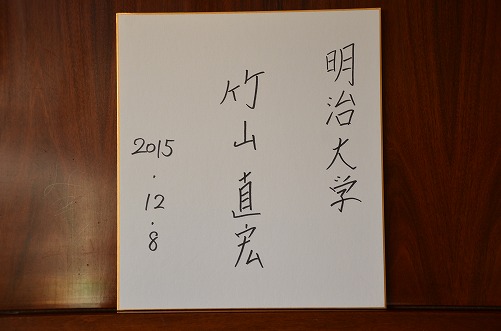 明治大学
竹山直宏
2015.12.8